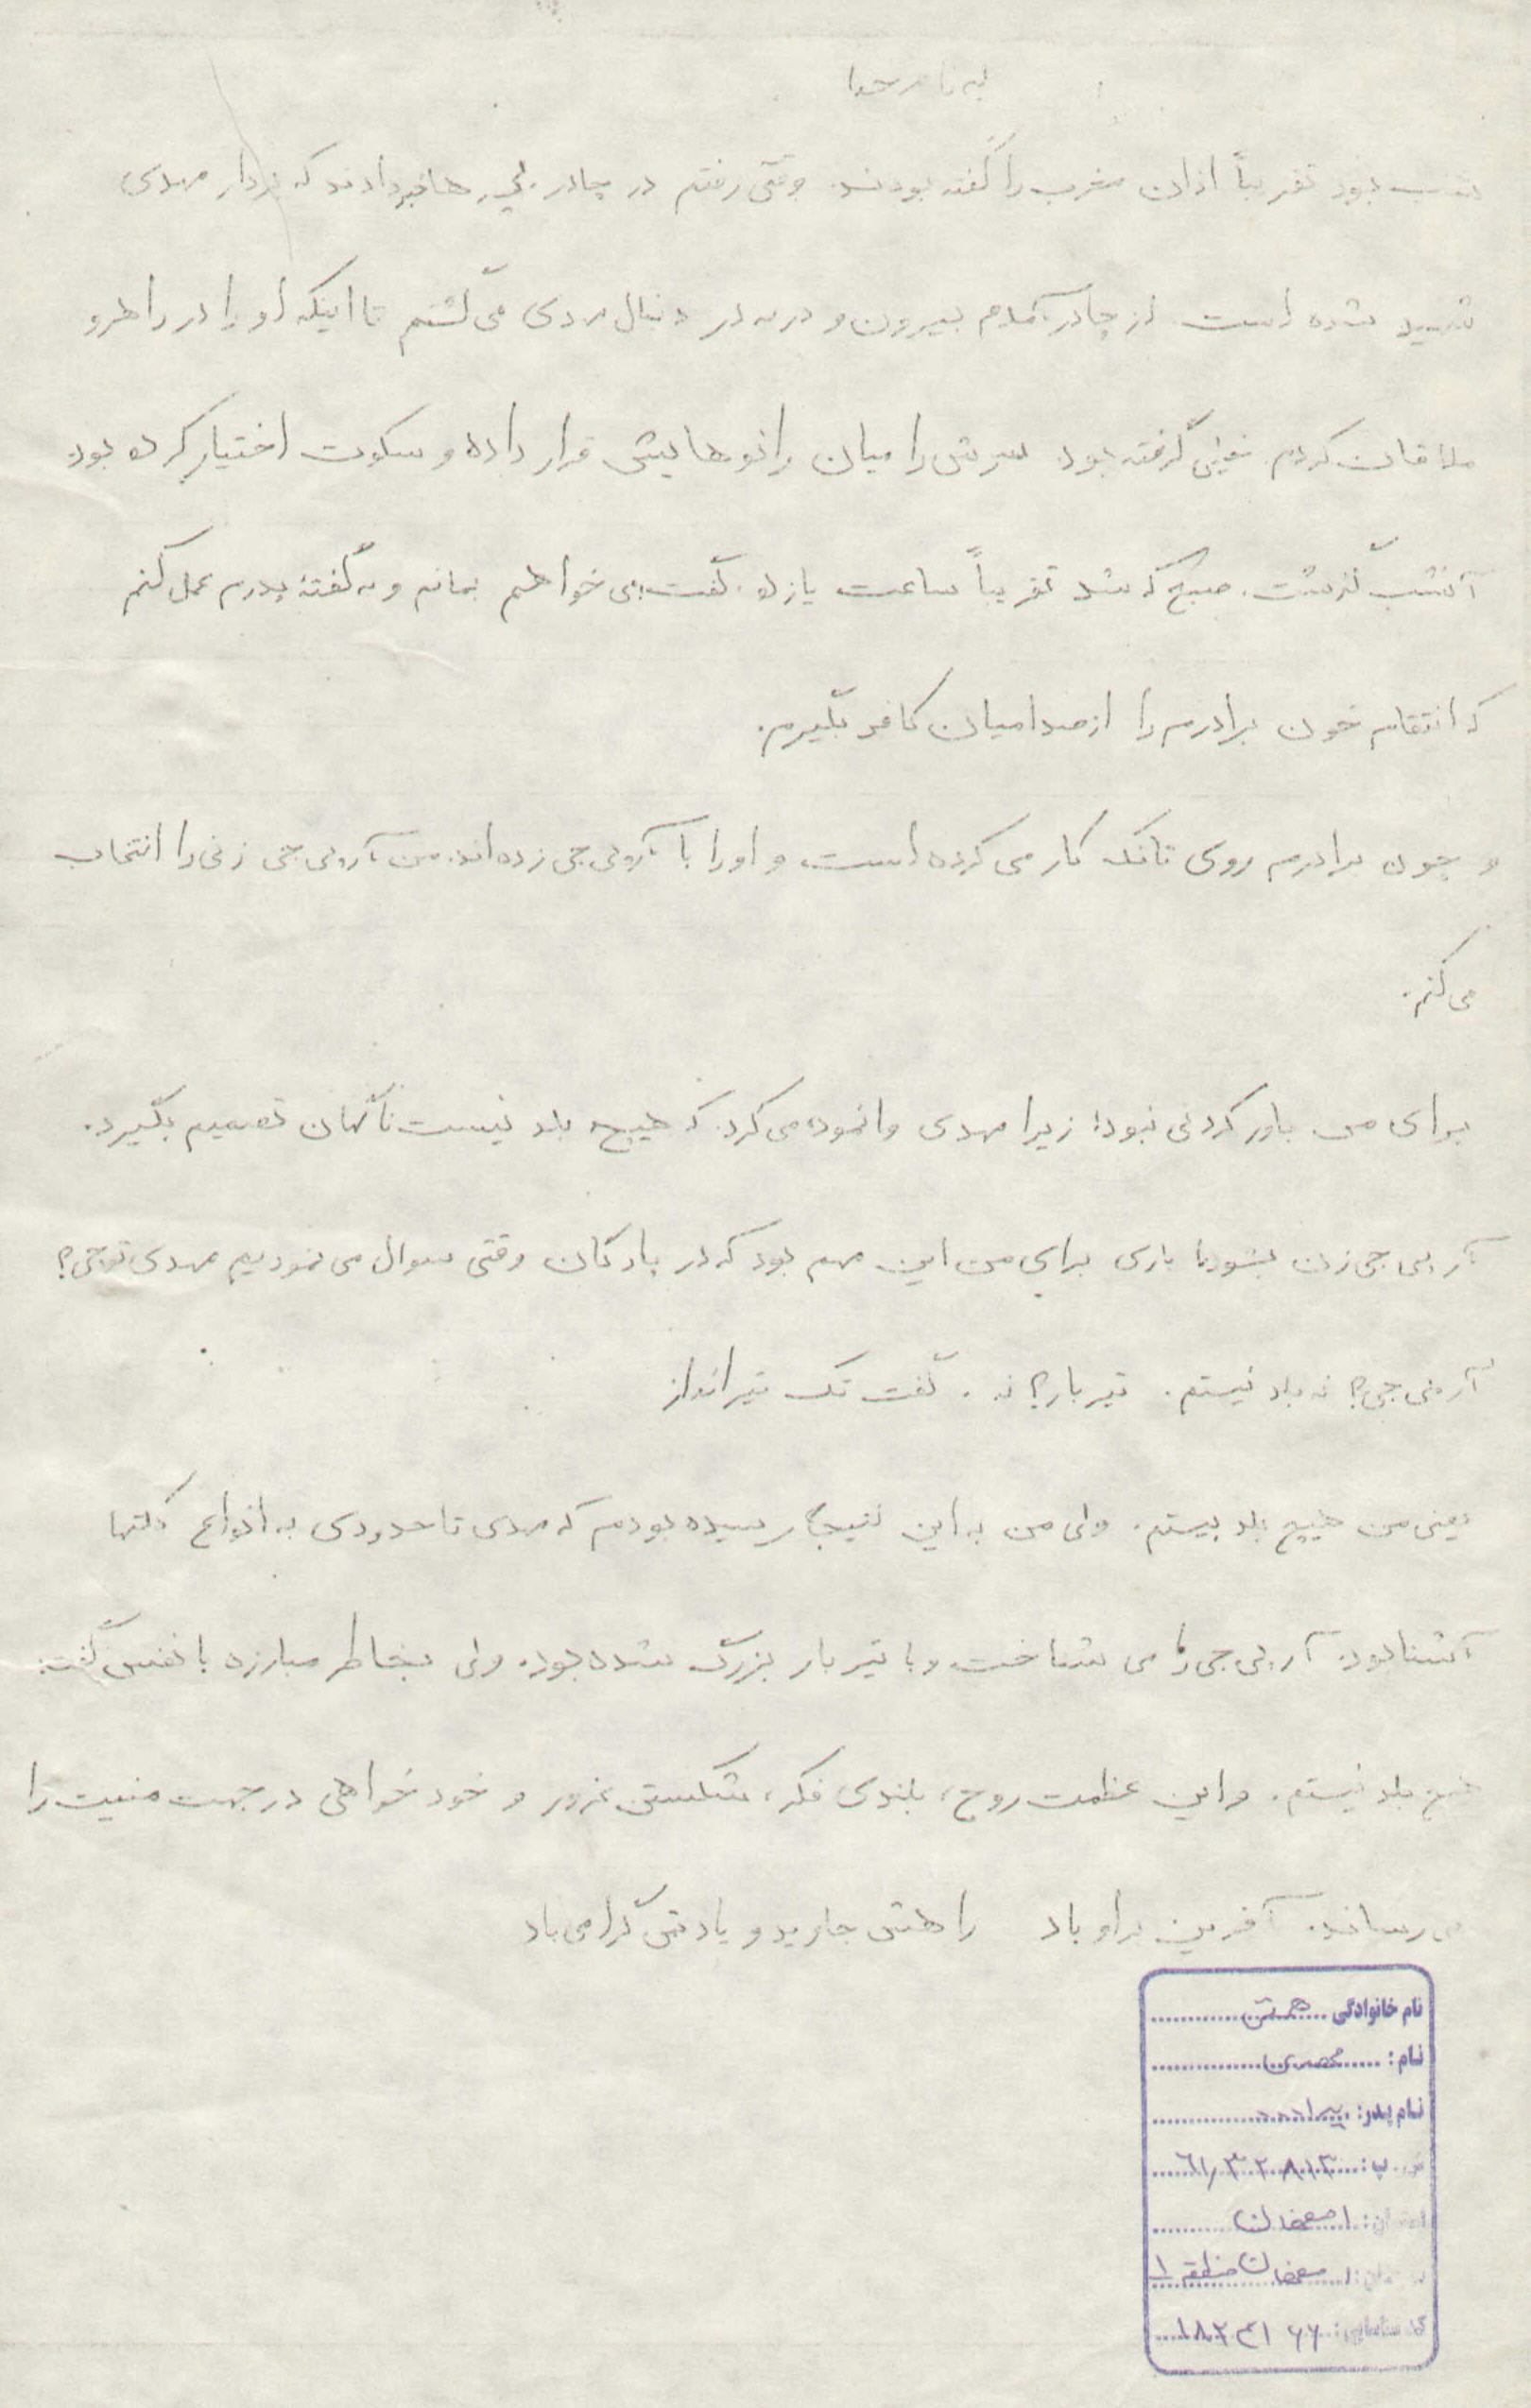 به نام خدا
شب بود تقریباً اذان مغرب را گفته بودند. وقتی رفتم در چادر بچه ها خبر دادند که مهدی
شهید شده است. از چادر آمدم بیرون و دربه در دنبال مهدی می گشتم تا اینکه او را در راهرو
ملاقات کردم. گرفته بود. سرش را میان زانوهایش قرار داده و سکوت اختیار کرده بود.
آنشب گذشت. صبح که شد تقریباً ساعت یازده. گفت: می خواهم بمانم و به گفتهٔ پدرم عمل کنم
که انتقام خون برادرم را از صدامیان کافر بگیرم.
و چون برادرم روی تانک کار می کرده است و او را با آرپی جی زده اند. من آرپی جی زنی را انتخاب
می کنم.
برای من باور کردنی نبود؛ زیرا مهدی وانمود می کرد. که هیچ بلد نیست ناگهان تصمیم بگیرد.
آرپی جی زن بشود. باری برای من این مهم بود که در پادگان وقتی سوال می نمودیم مهدی توچی؟
آرپی جی؟ نه بلد نیستم. تیربار؟ نه. گفت تک تیرانداز
یعنی من هیچ بلد نیستم. ولی من به این نتیجه رسیده بودم که مهدی تا حدودی به انواع
آشنا بود. آرپی جی را می شناخت و با تیربار بزرگ شده بود. ولی بخاطر مبارزه با نفس گفت:
هیچ بلد نیستم. و این عظمت روح، بلندی فکر، شکستن غرور و خودخواهی در جهت منیت را
می رساند. آفرین براو باد راهش جاوید و یادش گرامی باد
نام خانوادگی
نام: مهدی
نام پدر:
اصفهان
اصفهان منطقه ۱